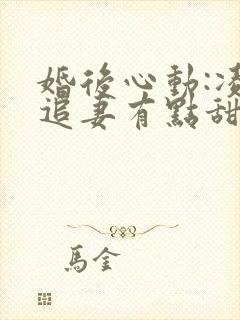 婚後心動:凌
追妻有點甜
馬金